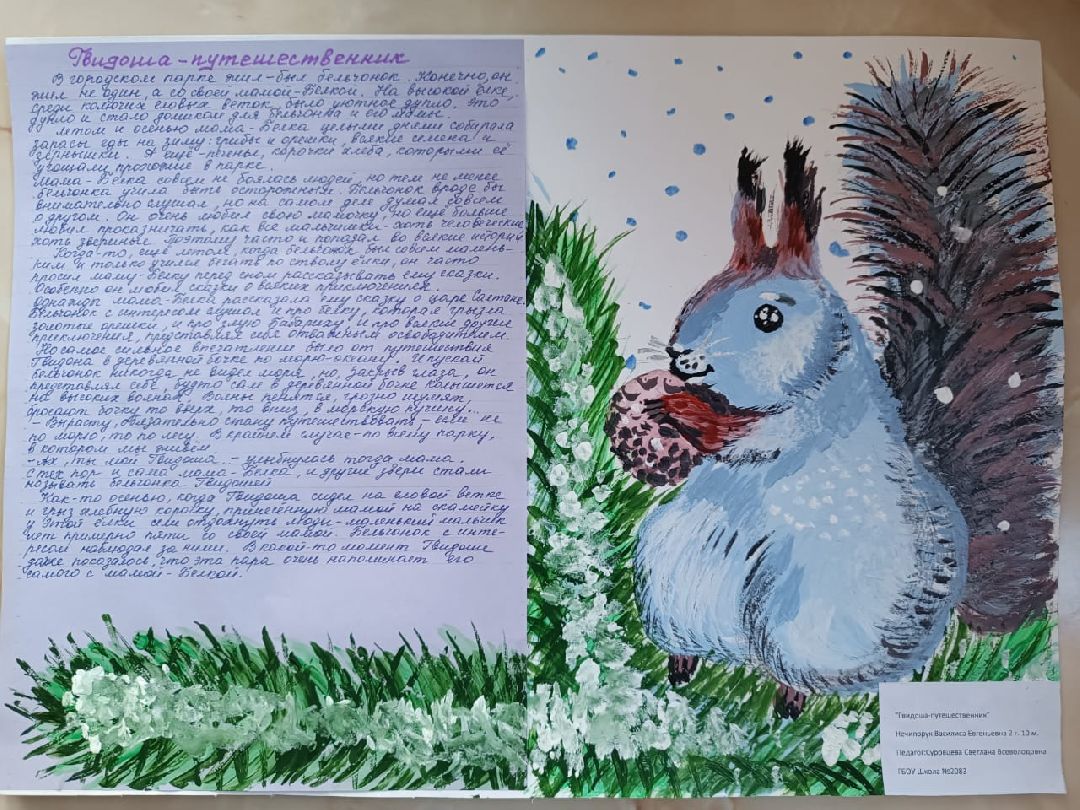 Гвидоша-путешественник
В городском парке жил-был бельчонок. Конечно, он
жил не один, а со своей мамой-Белкой. На высокой ёлке,
среди колючих еловых веток, было уютное дупло. Это
дупло и стало домиком для бельчонка и его мамы.
Летом и осенью мама-Белка целыми днями собирала
запасы еды на зиму: грибы и орешки, всякие семена и
зёрнышки. А ещё-печенье, корочки хлеба, которыми её
угощали прохожие в парке.
Мама-Белка совсем не боялась людей, но тем не менее
бельчонка учила быть осторожным. Бельчонок вроде бы
внимательно слушал, но на самом деле думал совсем
о другом. Он очень любил свою мамочку, но ещё больше
любил проказничать, как все мальчишки-хоть человеческие
хоть звериные. Поэтому часто и попадал во всякие истории
Когда-то, ещё летом, когда бельчонок был совсем малень-
ким и только учился бегать по стволу ёлки, он часто
просил маму-белку перед сном рассказывать ему сказки.
Особенно он любил сказки о всяких приключениях.
Однажды мама-Белка рассказала ему сказку о царе Салтане.
Бельчонок с интересом слушал и про белку, которая грызла
золотые орешки, и про злую Бабариху, и про всякие другие
приключения, представляя себя отважным освободителем.
Но самое сильное впечатление было от путешествия
Гвидона в деревянной бочке по морю-океану. И пускай
бельчонок никогда не видел моря, но, закрыв глаза, он
представлял себе, будто сам в деревянной бочке колышется
на высоких волнах. Волны пенятся, грозно шумят,
бросают бочку то вверх, то вниз, в морскую пучину...
- Вырасту, обязательно стану путешествовать - если не
по морю, то по лесу. В крайнем случае-по всему парку,
в котором мы живём
- Ах, ты мой Гвидоша, - улыбнулась тогда мама.
С тех пор и сама мама-Белка, и другие звери стали
называть бельчонка Гвидошей
Как-то осенью, когда Гвидоша сидел на еловой ветке
и грыз хлебную корочку, принесённую мамой на скамейку
у этой ёлки сели отдохнуть люди-маленький мальчик
лет примерно пяти со своей мамой. Бельчонок с инте-
ресом наблюдал за ними. В какой-то момент Гвидоше
даже показалось, что эта пара очень напоминает его
самого с мамой-Белкой.
"Гвидоша-путешественник"
Нечипорук Василиса Евгеньевна 2 г. 10 м.
Педагог:Суровцева Светлана Всеволодовна
ГБОУ Школа №2083